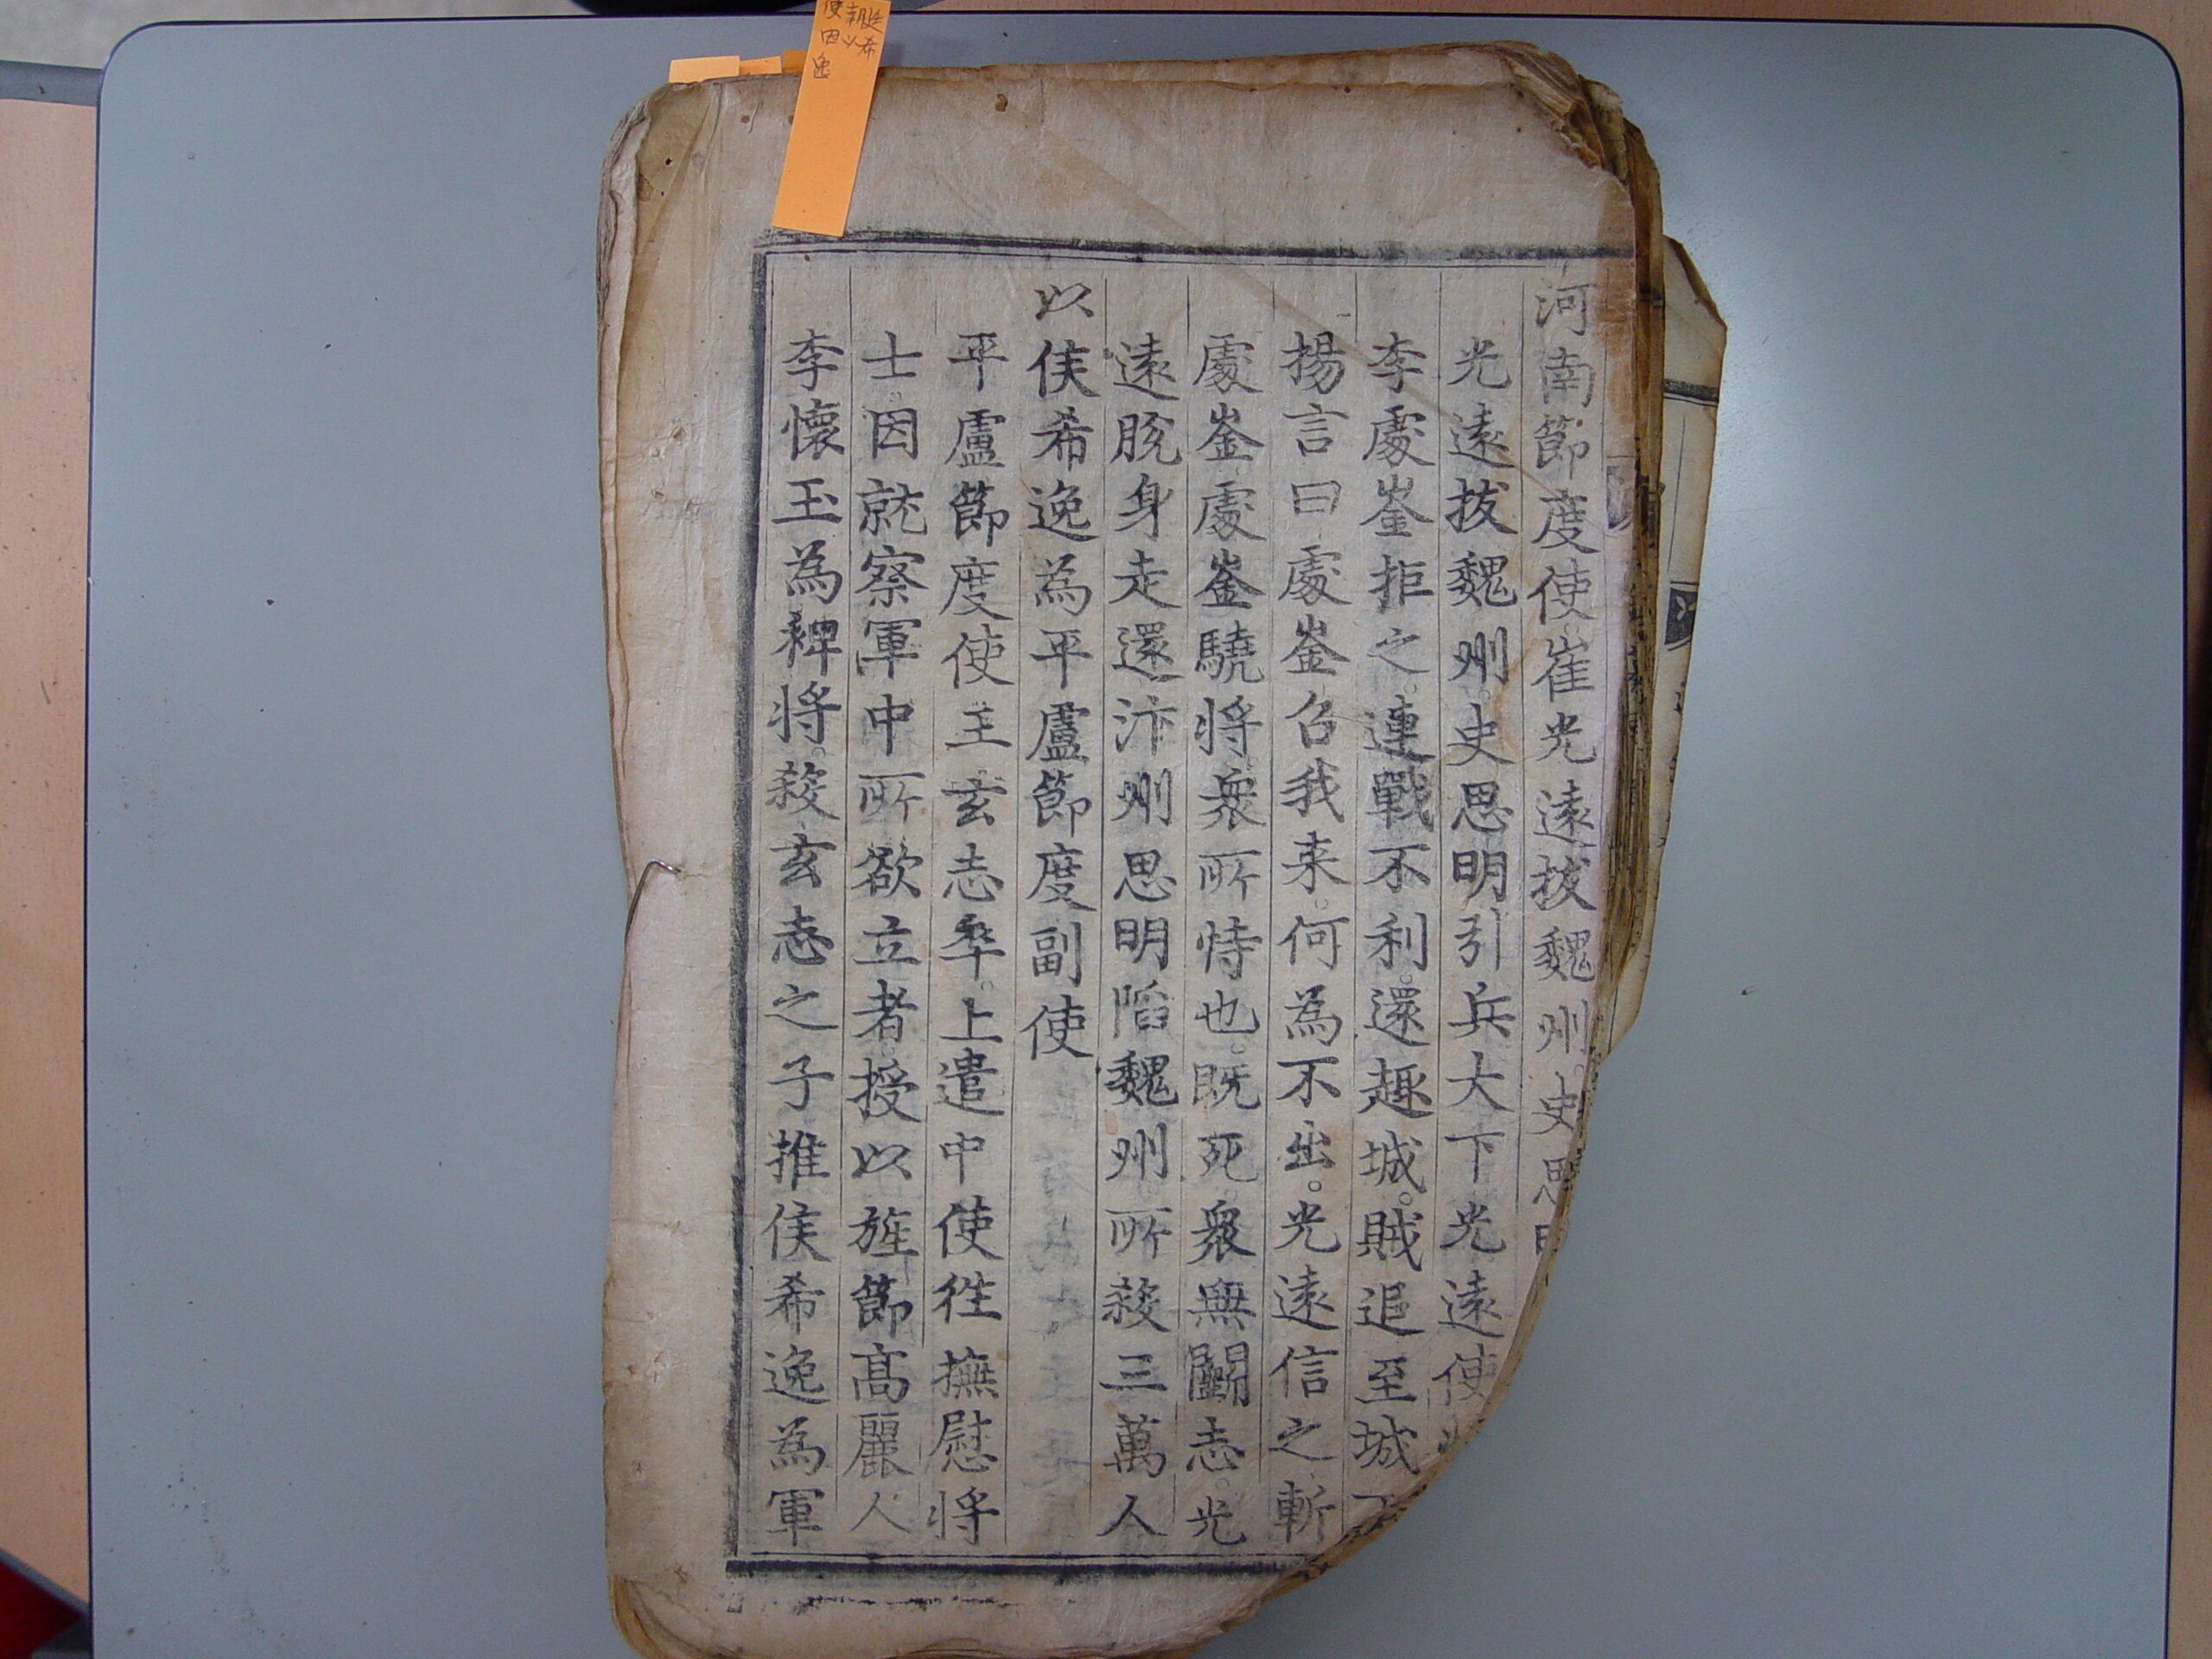 河南節度使崔光遠拔魏州史思
光遠拔魏州史思明引兵大下光遠使
李處崟拒之連戰不利還趣城賊追至城下
揚言曰處崟召我来何為不出光遠信之斬
處崟處崟驍將衆所恃也既死衆無鬬志光
遠脫身走還汴州思明陷魏州所殺三萬人
以侯希逸為平盧節度副使
平盧節度使王玄志卒上遣中使往撫慰將
士因就察軍中所欲立者授以旌節高麗人
李懷玉為裨將殺玄志之子推侯希逸為軍